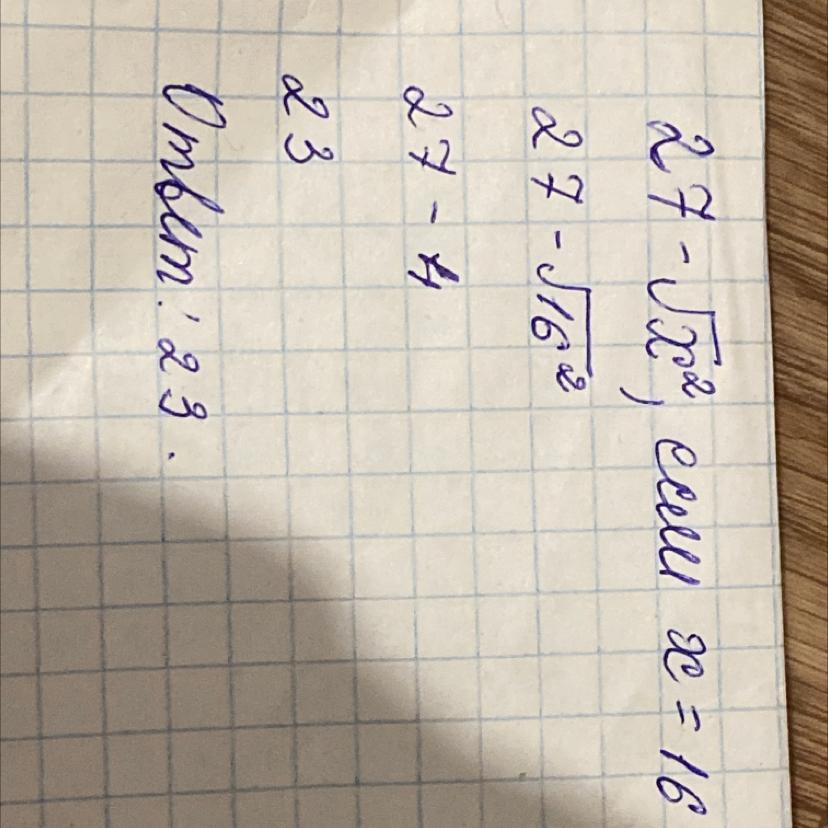 27 - √x², если x = 16
27 - √16²
27 - 4
23
Ответ: 23.